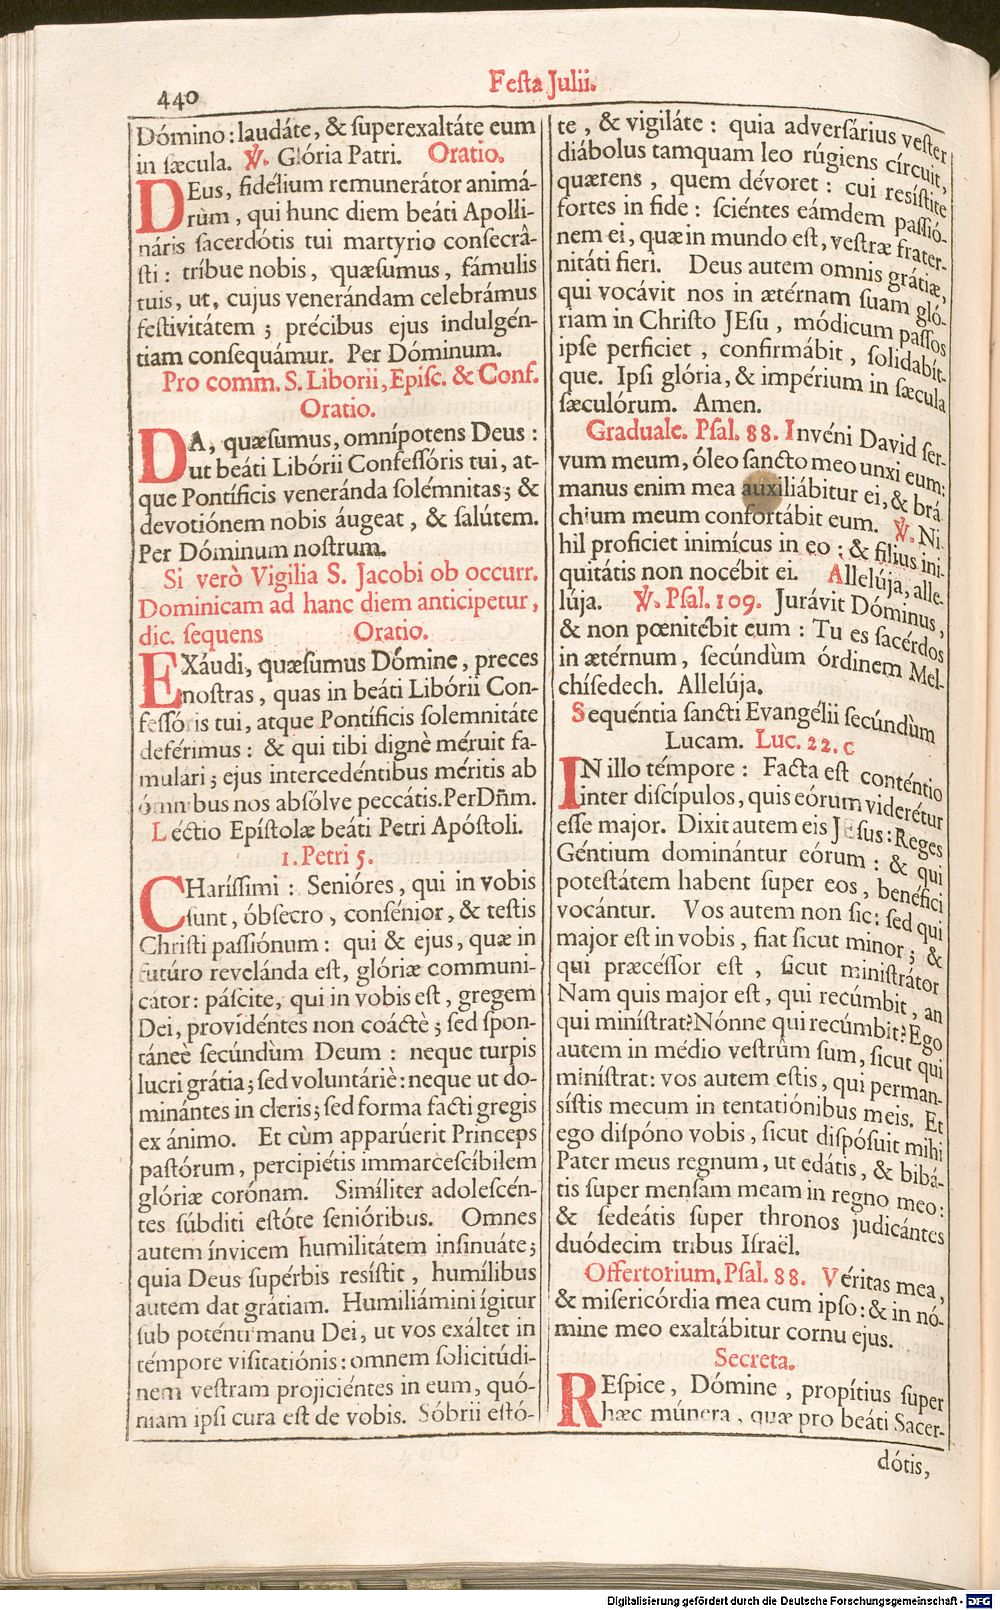 440
Festa Julii.
Dómino: laudáte, & superexaltáte eum
in sæcula. ℣. Glória Patri. Oratio.
DEus, fidélium remunerátor animá-
rùm, qui hunc diem beáti Apolli-
náris sacerdótis tui martyrio consecrâ-
sti: tríbue nobis, quæsumus, fámulis
tuis, ut, cujus venerándam celebrámus
festivitátem; précibus ejus indulgén-
tiam consequámur. Per Dóminum.
Pro comm. S. Liborii, Episc. & Conf.
Oratio.
DA, quæsumus, omnípotens Deus:
ut beáti Libórii Confessóris tui, at-
que Pontíficis veneránda solémnitas; &
devotiónem nobis áugeat, & salútem.
Per Dóminum nostrum.
Si verò Vigilia S. Jacobi ob occurr.
Dominicam ad hanc diem anticipetur,
dic. sequens Oratio.
EXáudi, quæsumus Dómine, preces
nostras, quas in beáti Libórii Con-
fessóris tui, atque Pontíficis solemnitáte
deférimus: & qui tibi dignè méruit fa-
mulári; ejus intercedéntibus méritis ab
ómnibus nos absólve peccátis. Per Dñm.
Léctio Epístolæ beáti Petri Apóstoli.
1. Petri 5.
CHaríssimi: Senióres, qui in vobis
sunt, óbsecro, consénior, & testis
Christi passiónum: qui & ejus, quæ in
futúro revelánda est, glóriæ communi-
cátor: páscite, qui in vobis est, gregem
Dei, providéntes non coáctè; sed spon-
táneè secúndùm Deum: neque turpis
lucri grátia; sed voluntáriè: neque ut do-
minántes in cleris; sed forma facti gregis
ex ánimo. Et cùm apparúerit Princeps
pastórum, percipiétis immarcescíbilem
glóriæ corónam. Simíliter adolescén-
tes súbditi estóte senióribus. Omnes
autem ínvicem humilitátem insinuáte;
quia Deus supérbis resístit, humílibus
autem dat grátiam. Humiliámini ígitur
sub poténti manu Dei, ut vos exáltet in
témpore visitatiónis: omnem solicitúdi-
nem vestram projiciéntes in eum, quó-
niam ipsi cura est de vobis. Sóbrii estó-
te, & vigiláte: quia adversárius vester
diábolus tamquam leo rúgiens círcuit,
quærens, quem dévoret: cui resístite
fortes in fide: sciéntes eámdem passió-
nem ei, quæ in mundo est, vestræ frater-
nitáti fieri. Deus autem omnis grátiæ,
qui vocávit nos in ætérnam suam gló-
riam in Christo JEsu, módicum passos
ipse perficiet, confirmábit, solidabít-
que. Ipsi glória, & impérium in sæcula
sæculórum. Amen.
Graduale. Psal. 88. Invéni David ser-
vum meum, óleo sancto meo unxi eum:
manus enim mea auxiliábitur ei, & brá
chium meum confortábit eum. ℣. Ni-
hil proficiet inimícus in eo: & filius ini-
quitátis non nocébit ei. Allelúja, alle-
lúja. ℣. Psal. 109. Jurávit Dóminus,
& non pœnitébit eum: Tu es sacérdos
in ætérnum, secúndùm órdinem Mel-
chísedech. Allelúja.
Sequéntia sancti Evangélii secúndùm
Lucam. Luc. 22. c
IN illo témpore: Facta est conténtio
inter discípulos, quis eórum viderétur
esse major. Dixit autem eis JEsus: Reges
Géntium dominántur eórum: & qui
potestátem habent super eos, benéfici
vocántur. Vos autem non sic: sed qui
major est in vobis, fiat sicut minor; &
qui præcéssor est, sicut ministrátor
Nam quis major est, qui recúmbit, an
qui minístrat? Nónne qui recúmbit? Ego
autem in médio vestrûm sum, sicut qui
minístrat: vos autem estis, qui perman-
sístis mecum in tentatiónibus meis. Et
ego dispóno vobis, sicut dispósuit mihi
Pater meus regnum, ut edátis, & bibá-
tis super mensam meam in regno meo:
& sedeátis super thronos judicántes
duódecim tribus Israël.
Offertorium. Psal. 88. Véritas mea,
& misericórdia mea cum ipso: & in nó-
mine meo exaltábitur cornu ejus.
Secreta.
REspice, Dómine, propítius super
hæc múnera, quæ pro beáti Sacer-
dótis,
Digitalisierung gefördert durch die Deutsche Forschungsgemeinschaft - DFG